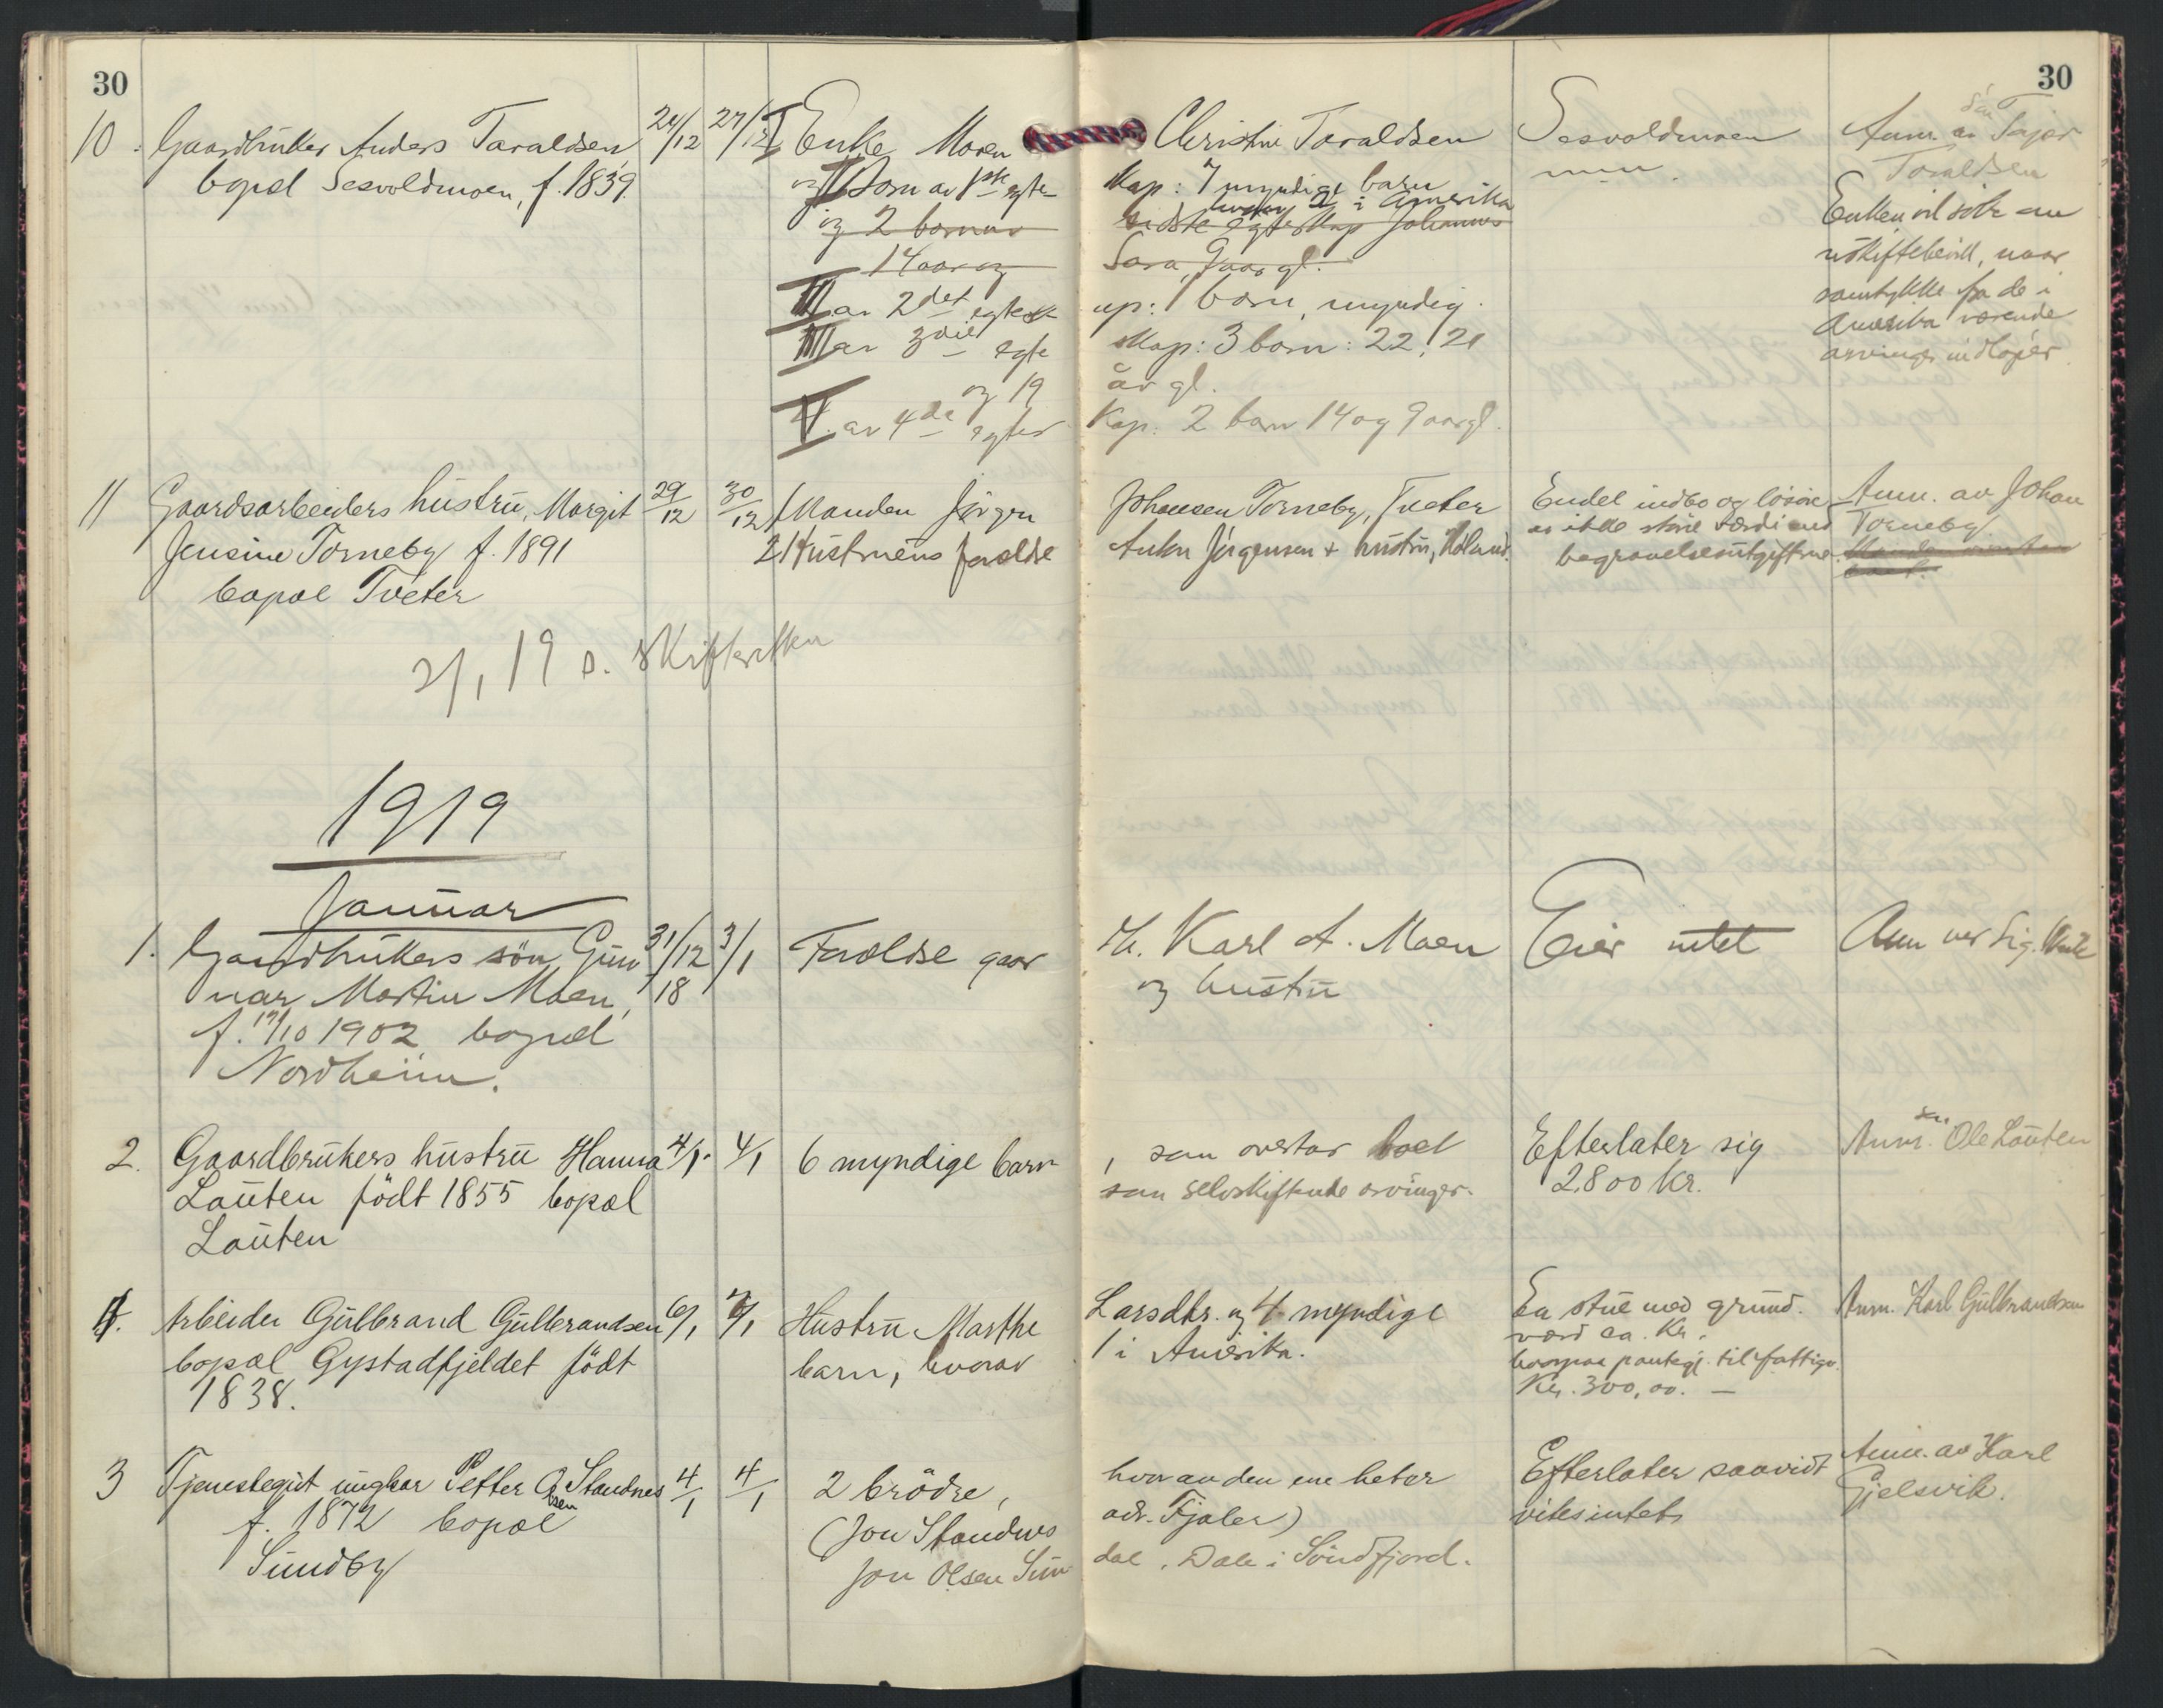 30
30
10. Gaardbruker Anders Taraldsen 24/12 27/12 I Enke Maren Christine Taraldsen Sesvoldmoen Anm. av sön
bopæl Sesvoldmoen, f. 1839. og II Barn av 1ste egte- skap: 7 myndige barn Taraldsen
og 2 barn av hvorav 2 i Amerika Enken vil söke om
sidste egteskap Johannes uskiftebevill, naar
14 aar og Sara, 9 aar gl. samtykke fra de i
III av 2det egtesk- ap: 1 barn, myndig. Amerika værende
av 3die egte skap: 3 barn: 22, 21 arvinger indløper
og 19 år gl.
av 4de egtes kap. 2 barn 14 og 9 aar gl.
11 Gaardsarbeiders hustru, Margit 29/12 30/12 1 Manden Jörgen Johansen Torneby, Tveter Endel indbo og lösöre Anm. av Johan
Jensine Torneby f. 1891 2 Hustruens foreldre Anton Jörgensen + hustru, Höland. av ikke større værdi end Torneby
bopæl Tveter begravelsesutgiftene.
2/1 19 s. skifteretten
1919
Januar
1. Gaardbrukers sön Gun 31/12 18 3/1 Foreldre gaar br. Karl A. Moen Eier intet Anm ved Sig.
nar Martin Moen, og hustru
f. 17/10 1902 bopæl
Nordheim.
2. Gaardbrukers hustru Hanna 4/1. 4/1 6 myndige barn, som overtar boet Efterlater sig Anm. sön Ole Lauten
Lauten födt 1855 bopæl som selvskiftende arvinger. 2.800 Kr.
Lauten
4. Arbeider Gulbrand Gulbrandsen 6/1 7/1 Hustru Marthe Larsdtr. og 4 myndige En stue med grund. Anm. Karl Gulbrandsen
bopæl Gystadfjeldet födt barn, hvorav 1 i Amerika. værd ca. Kr.
1838. hvorpaa pantegj. til fattigv.
Kr. 300,00. —
3 Tjenestegut ungkar Petter Olsen Standnes 4/1 4/1 2 brödre, hvorav den ene heter Efterlater saavidt Anm. av Karl
f. 1872 bopæl (Jon Standnes adr. Fjaler) vites intet Gjelsvik.
Sundby Jon Olsen Sun dal, Dale i Söndfjord.